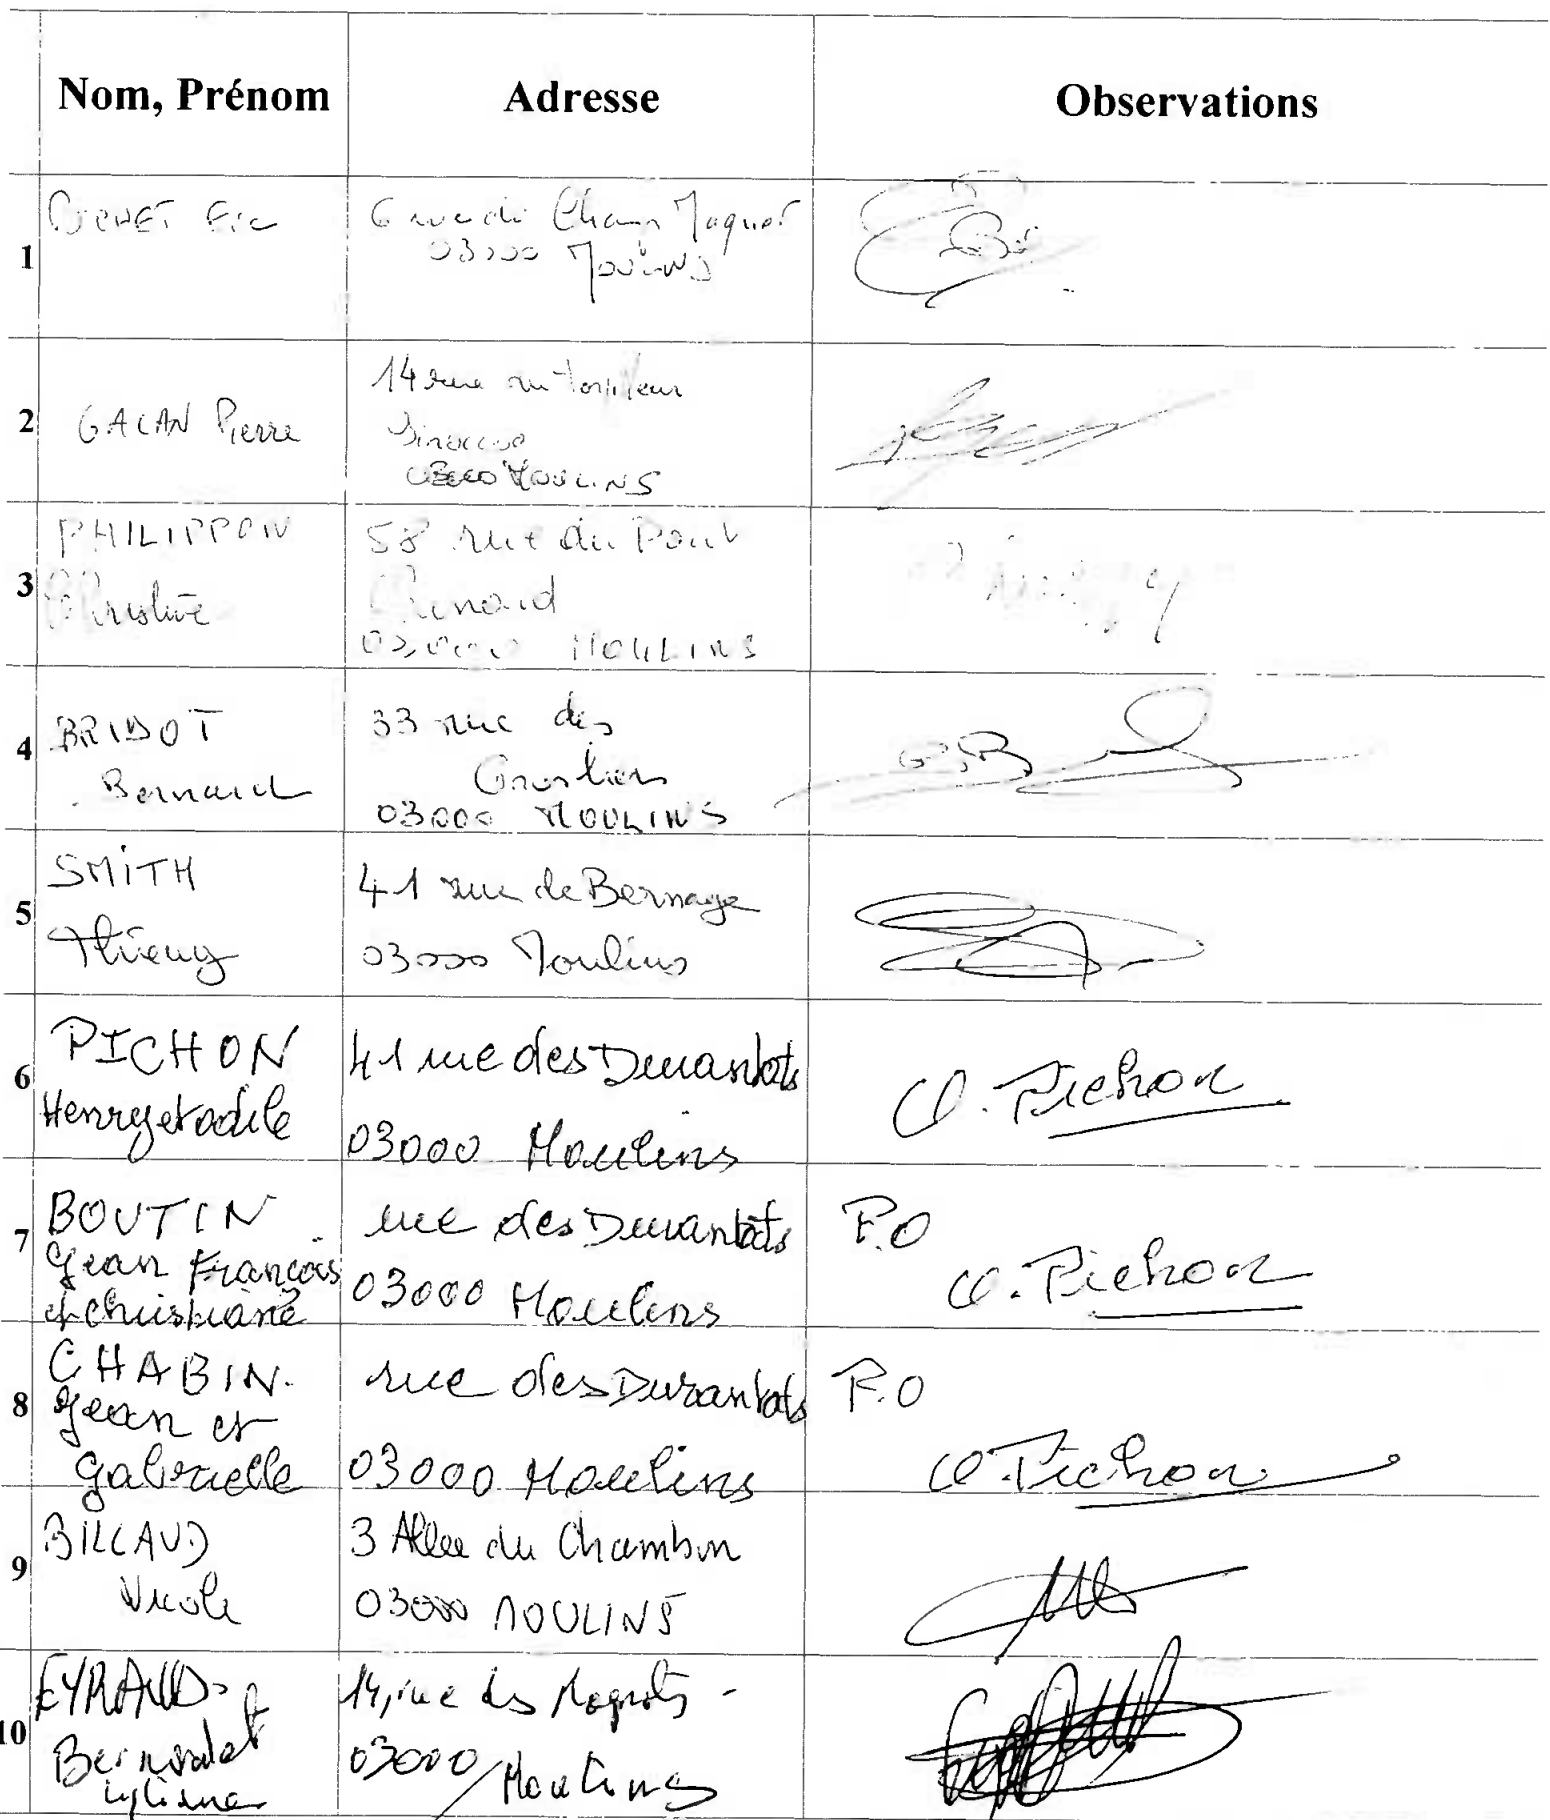 Nom, Prénom
Adresse
Observations
1
6 rue du Champ
03000 Moulins
2
GALAN Pierre
14 rue du
03000 MOULINS
3
PHILIPPON
Christine
58 rue du Pont
Renard
03000 MOULINS
4
BRIDOT
Bernard
33 rue des
03000 MOULINS
5
SMITH
Thierry
41 rue de Bernage
03000 Moulins
6
PICHON
Henry et Odile
41 rue des Durantats
03000 Moulins
O. Pichon
7
BOUTIN
Jean François
et Christiane
rue des Durantats
03000 Moulins
P.O
O. Pichon
8
CHABIN.
Jean et
Gabrielle
rue des Durantats
03000 Moulins
P.O
O. Pichon
9
BILLAUD
Nicole
3 Allee du Chambon
03000 MOULINS
10
EYRAUD-
14, rue des
03000 Moulins